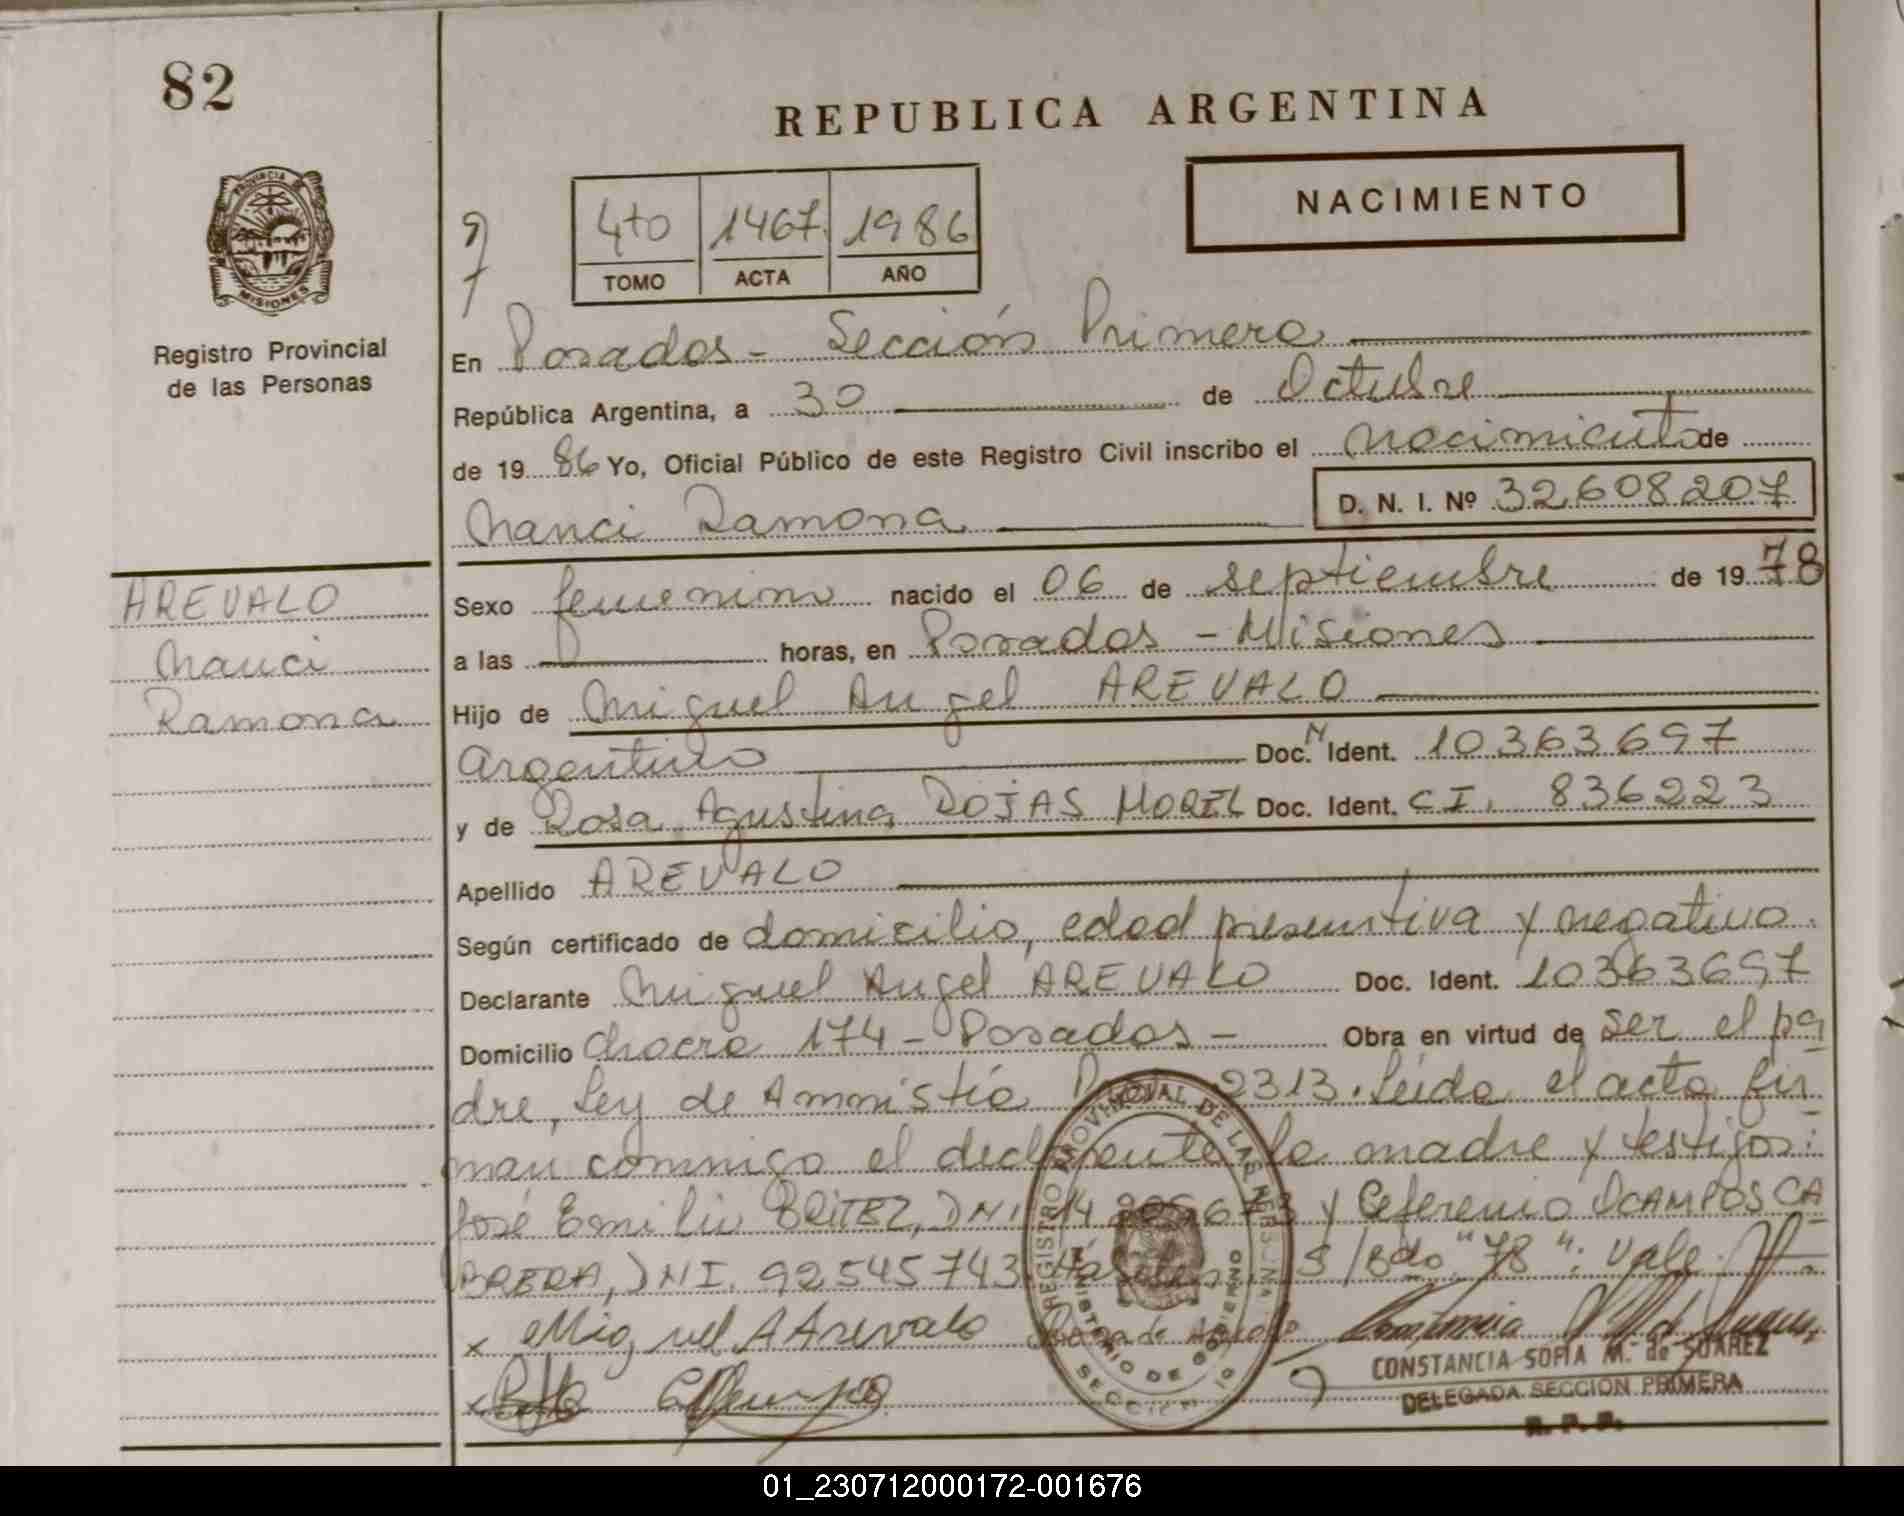 82
REPUBLICA ARGENTINA
NACIMIENTO
PROVINCIA DE
MISIONES
Registro Provincial
de las Personas
4to 1467 1986
TOMO ACTA AÑO
En Posadas - Sección Primera
República Argentina, a 30 de Octubre
de 1986 Yo, Oficial Público de este Registro Civil inscribo el nacimiento de
Nanci Ramona D. N. I. Nº 32608207
AREVALO
Nanci
Ramona
Sexo femenino nacido el 06 de septiembre de 1978
a las horas, en Posadas - Misiones
Hijo de Miguel Angel AREVALO
argentino Doc. N Ident. 10363697
y de Rosa Agustina ROJAS MOREL Doc. Ident. C I. 836223
Apellido AREVALO
Según certificado de domicilio, edad presuntiva y negativo.
Declarante Miguel Angel AREVALO Doc. Ident. 10363697
Domicilio Chacra 174 - Posadas - Obra en virtud de ser el pa
dre, Ley de Amnistía 2313. Leída el acta fir
man conmigo el declarante la madre y testigos:
José Emilio BRITEZ, DNI 14 y Ceferenio OCAMPOS CA
BRERA, DNI. 92545743. S/Bdo "78": Vale.
x Miguel A Arevalo
REGISTRO PROVINCIAL DE LAS PERSONAS
MINISTERIO DE GOBIERNO
SECCION 1º
CONSTANCIA SOFIA M. de SUAREZ
DELEGADA SECCION PRIMERA
R. P. P.
01_230712000172-001676